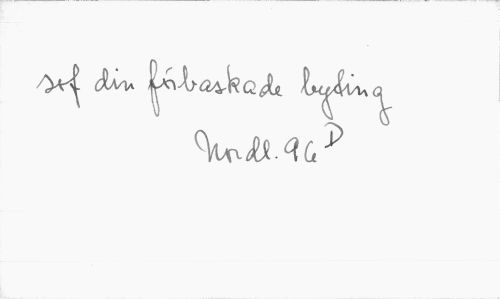 sof din förbaskade byting
Nordl. 96 D